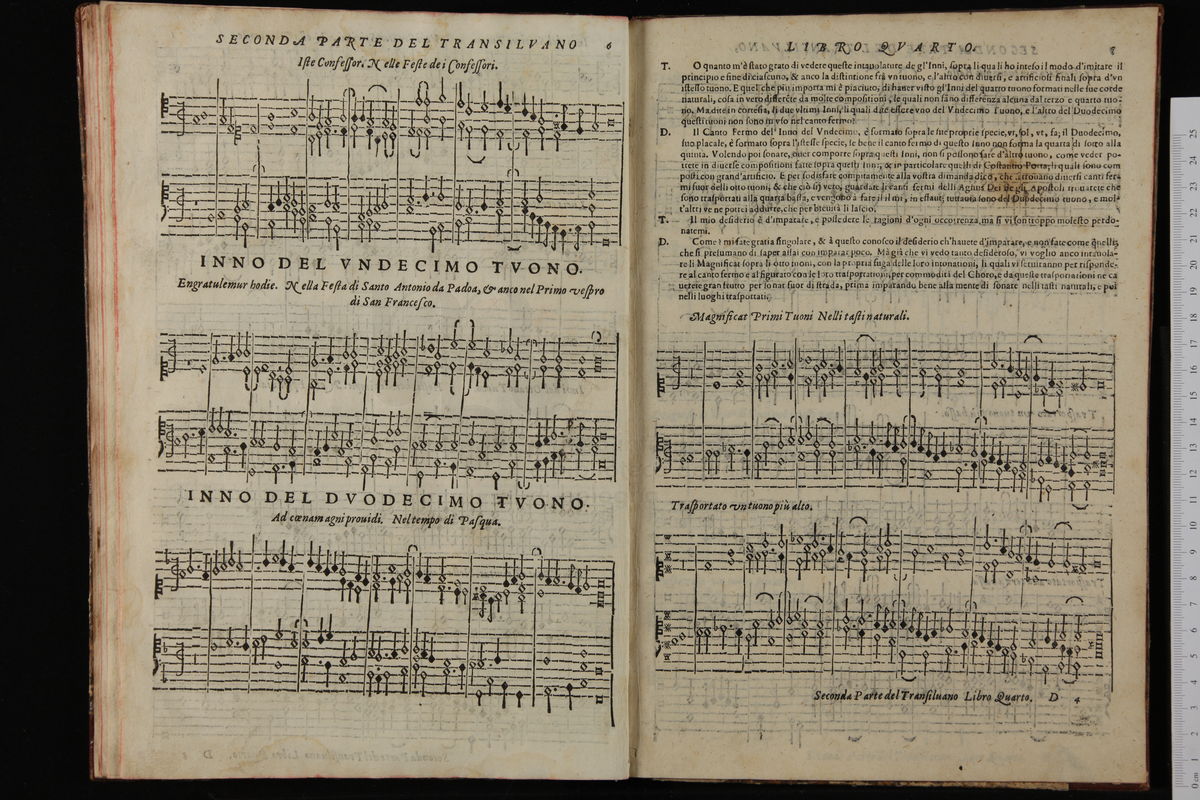 SECONDA PARTE DEL TRANSILVANO 6
Iste Confessor. Nelle Feste dei Confessori.
INNO DEL VNDECIMO TVONO.
Engratulemur hodie. Nella Festa di Santo Antonio da Padoa, & anco nel Primo vespro
di San Francesco.
INNO DEL DVODECIMO TVONO.
Ad cœnam agni prouidi. Nel tempo di Pasqua.
LIBRO QVARTO.
T. O quanto m'è stato grato di vedere queste intauolature de gl'Inni, sopra li quali ho inteso il modo d'imitare il
principio e fine di ciascuno, & anco la distintione frà vn tuono, e l'altro con diuersi, e artificiosi finali sopra d'vn
istesso tuono. E quel che più importa mi è piaciuto, di hauer visto gl'Inni del quarto tuono formati nelle sue corde
naturali, cosa in vero differēte da molte compositioni, le quali non fano differēza alcuna dal terzo e quarto tuo-
no. Ma dite in cortesia, li due vltimi Inni, li quali dite essere vno del Vndecimo Tuono, e l'altro del Duodecimo
questi tuoni non sono in vso nel canto fermo?
D. Il Canto Fermo del' Inno del Vndecimo, è formato sopra le sue proprie specie, vt, sol, vt, fa; il Duodecimo,
suo placale, è formato sopra l'istesse specie, se bene il canto fermo di questo Inno non forma la quarta di sotto alla
quinta. Volendo poi sonare, ouer comporre sopra questi Inni, non si possono fare d'altro tuono, come veder po-
trete in diuerse compositioni fatte sopra questi Inni, & in particolare quelli di Costantio Porta, li quali sono com
posti con grand'artificio. E per sodisfare compitamente alla vostra dimanda dico, che si trouano diuersi canti fer-
mi fuor delli otto tuoni; & che ciò sij vero, guardate li canti fermi delli Agnus Dei de gli Apostoli trouarete che
sono trasportati alla quarta bassa, e vengono a fare il il mi, in effaut; tuttauia sono del Duodecimo tuono, e mol-
t'altri ve ne potrei addurre, che per breuità li lascio.
T. Il mio desiderio è d'imparare, e possedere le ragioni d'ogni occorrenza, ma si vi son troppo molesto perdo-
natemi.
D. Come? mi fate gratia singolare, & à questo conosco il desiderio ch'hauete d'imparare, e non fate come quelli,
che si presumano di saper assai con imparar poco. Mà già che vi vedo tanto desideroso, vi voglio anco intauola-
re li Magnificat sopra li otto tuoni, con la propria fuga delle loro intonationi, li quali vi seruiranno per risponde-
re al canto fermo e al figurato con le loro trasportationi, per commodità del Choro, e da queste trasportationi ne ca
uerete gran frutto per sonar fuor di strada, prima imparando bene alla mente di sonare nelli tasti naturali, e poi
nelli luoghi trasportati.
Magnificat Primi Tuoni Nelli tasti naturali.
Trasportato vn tuono più alto.
Seconda Parte del Transiluano Libro Quarto. D 4